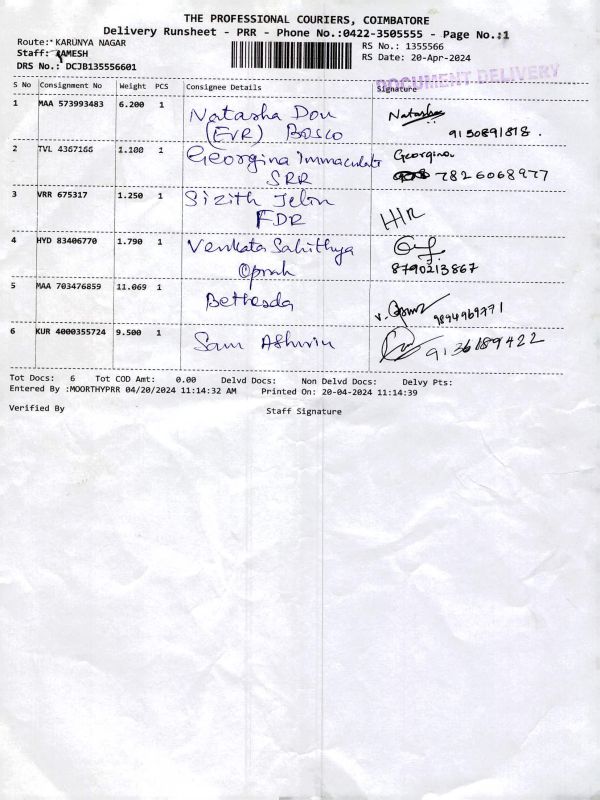 THE PROFESSIONAL COURIERS, COIMBATORE
Delivery Runsheet - PRR - Phone No.:0422-3505555 - Page No.:1
Route: KARUNYA NAGAR
RS No.: 1355566
Staff: RAMESH
RS Date: 20-Apr-2024
DRS No.: DCJB135556601
DOCUMENT DELIVERY
S No Consignment No Weight PCS Consignee Details Signature
1 MAA 573993483 6.200 1 Natasha Don Natasha
(EVR) Bosco 9150891818.
2 TVL 4367166 1.100 1 Georgina Immaculate Georgina
SRR 7826068977
3 VRR 675317 1.250 1 Sizith Jelin
FDR
4 HYD 83406770 1.790 1 Venkata Sahithya
Oprah 8790213867
5 MAA 703476859 11.069 1 Bethesda
9894969771
6 KUR 4000355724 9.500 1 Sam Ashwin 9136189422
Tot Docs: 6 Tot COD Amt: 0.00 Delvd Docs: Non Delvd Docs: Delvy Pts:
Entered By :MOORTHYPRR 04/20/2024 11:14:32 AM Printed On: 20-04-2024 11:14:39
Verified By Staff Signature